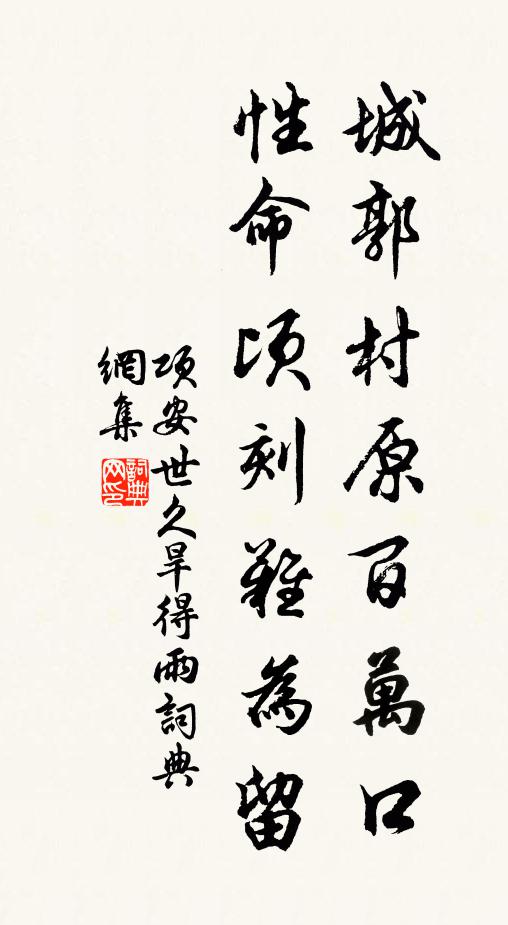 城郭村原百萬口
性命頃刻難為留
項安世久旱得雨詞典
網集
詞典
网印